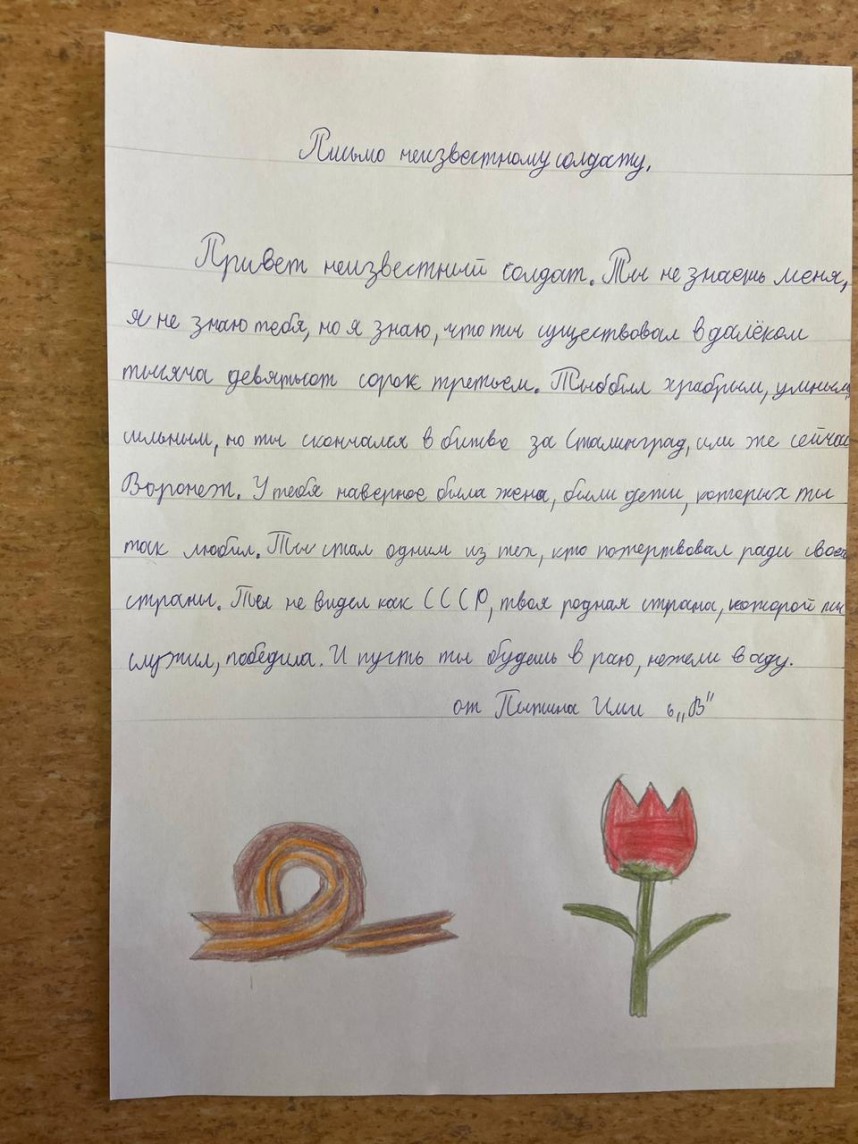 Письмо неизвестному солдату.
Привет неизвестный солдат. Ты не знаешь меня,
я не знаю тебя, но я знаю, что ты существовал в далёком
тысяча девятьсот сорок третьем. Ты был храбрым, умным,
сильным, но ты скончался в битве за Сталинград, или же сейчас
Воронеж. У тебя наверное была жена, были дети, которых ты
так любил. Ты стал одним из тех, кто пожертвовал ради своей
страны. Ты не видел как СССР, твоя родная страна, которой ты
служил, победила. И пусть ты будешь в раю, нежели в аду.
от 6 „В"